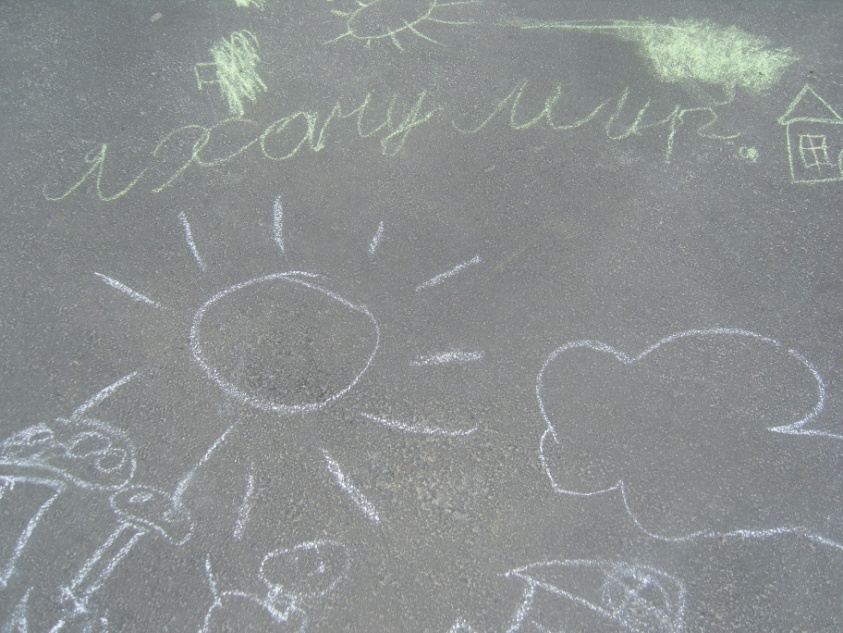 я хочу мир.